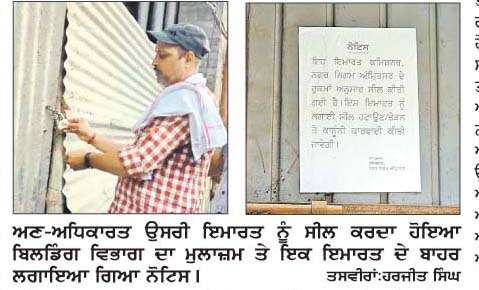 ਨੋਟਿਸ
ਇਹ ਇਮਾਰਤ ਕਮਿਸ਼ਨਰ,
ਨਗਰ ਨਿਗਮ ਅੰਮ੍ਰਿਤਸਰ ਦੇ
ਹੁਕਮਾਂ ਅਨੁਸਾਰ ਸੀਲ ਕੀਤੀ
ਗਈ ਹੈ। ਇਸ ਇਮਾਰਤ ਨੂੰ
ਲਗਾਈ ਸੀਲ ਹਟਾਉਣ/ਤੋੜਨ
ਤੇ ਕਾਨੂੰਨੀ ਕਾਰਵਾਈ ਕੀਤੀ
ਜਾਵੇਗੀ।
ਅਣ-ਅਧਿਕਾਰਤ ਉਸਰੀ ਇਮਾਰਤ ਨੂੰ ਸੀਲ ਕਰਦਾ ਹੋਇਆ
ਬਿਲਡਿੰਗ ਵਿਭਾਗ ਦਾ ਮੁਲਾਜ਼ਮ ਤੇ ਇਕ ਇਮਾਰਤ ਦੇ ਬਾਹਰ
ਲਗਾਇਆ ਗਿਆ ਨੋਟਿਸ। ਤਸਵੀਰਾਂ:ਹਰਜੀਤ ਸਿੰਘ